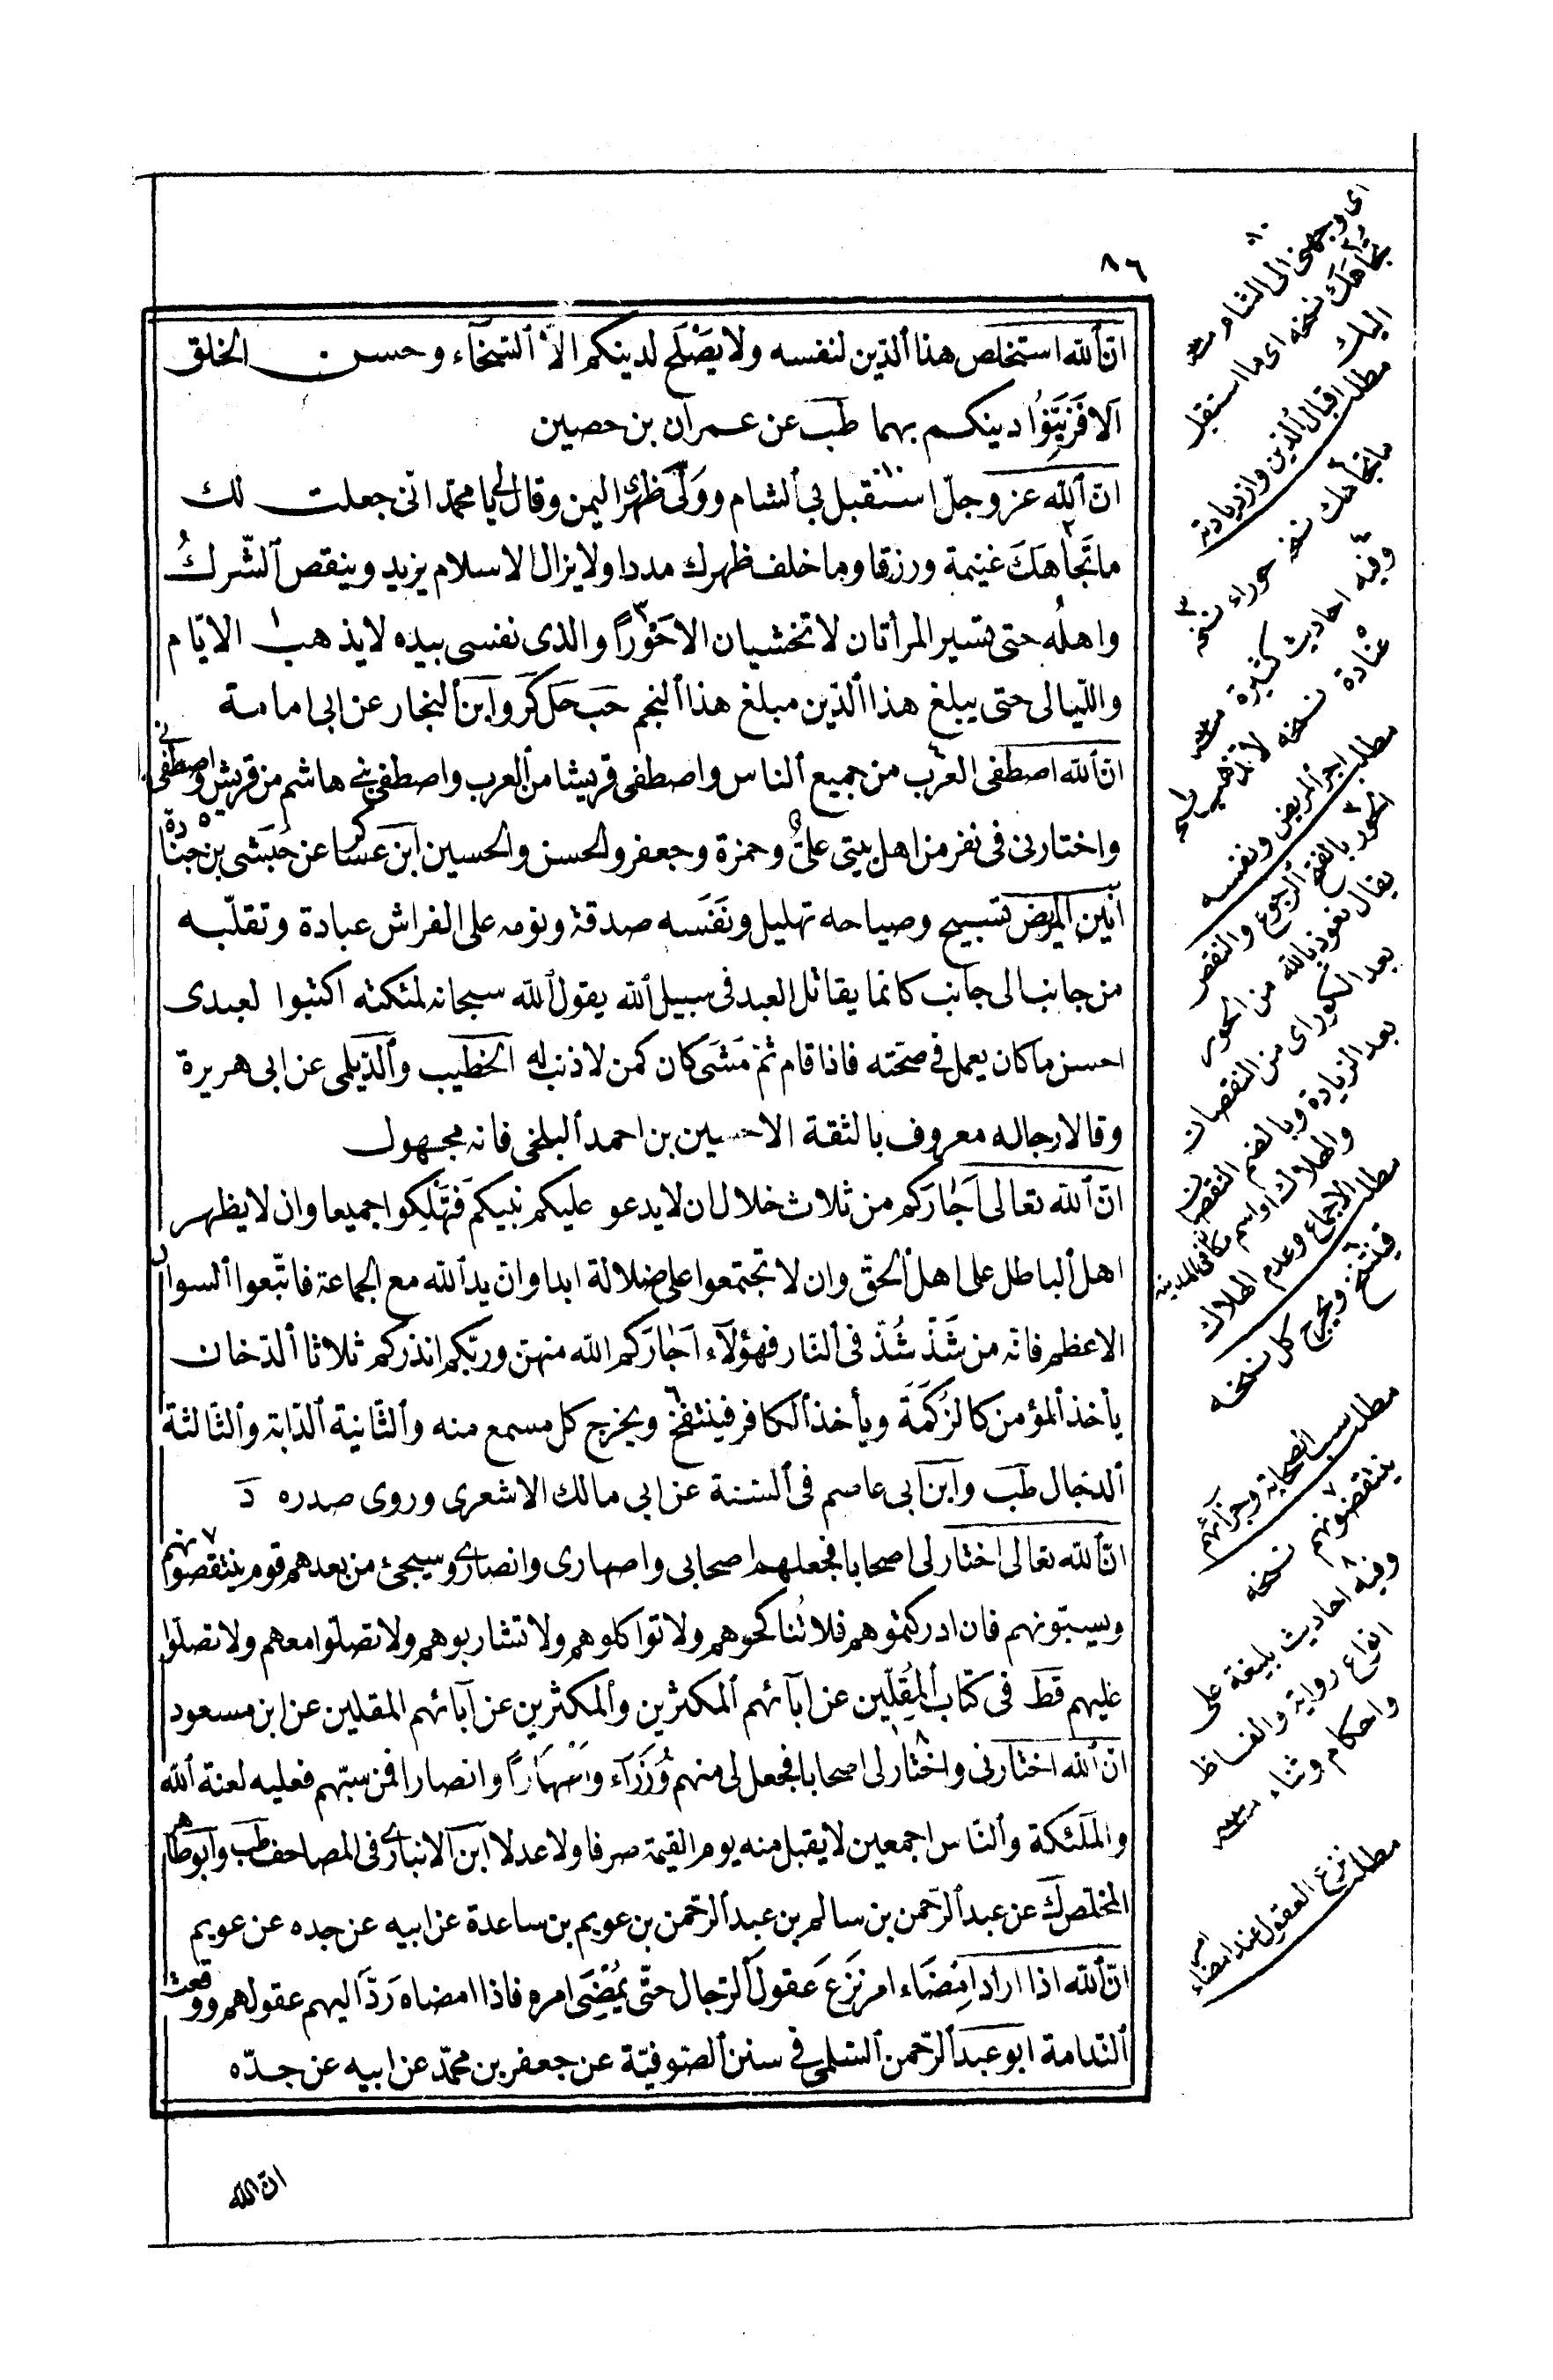 ٨٦
انّ الله استخلص هذا الدّين لنفسه ولا يَصْلَح لدينكم الاّ السّخآء وحسن الخلق
الا فَزَيِّنُوا دينكم بهما طب عن عمران بن حصين
انّ الله عز وجلّ استقبل بي الشام وولّى ظهرى اليمن وقال لي يا محمّد انى جعلت لك
ما تجاهكَ غنيمة ورزقا وما خلف ظهرك مددا ولا يزال الاسلام يزيد وينقص الشّركُ
واهلُه حتى تسير المرأتان لا تخشيان الا حَوْرًا والذى نفسى بيده لا يذهب الايّام
واللّيالى حتى يبلغ هذا الدّين مبلغ هذا النجم حَب حل كر وابن النجار عن ابى امامة
انّ الله اصطفى العرب من جميع الناس واصطفى قريشا من العرب واصطفى بنى هاشم من قريش واصطفانى
واختارنى فى نفر من اهل بيتى علىٌّ وحمزة وجعفر والحسن والحسين ابن عساكر عن حُبَشى بن جنادة
انّين المريض تسبيح وصياحه تهليل ونَفَسه صدقة ونومه على الفراش عبادة وتقلّبه
من جانب الى جانب كانما يقاتل العبد فى سبيل الله يقول الله سبحانه لملئكته اكتبوا لعبدى
احسن ما كان يعمل فى صحّته فاذا قام ثمّ مَشَى كان كمن لا ذنب له الخطيب والدّيلمى عن ابى هريرة
وقالا رجاله معروف بالثقة الا حسين بن احمد البلخى فانه مجهول
انّ الله تعالى اَجَارَكم من ثلاث خلال ان لا يدعو عليكم نبيكم فَتَهْلِكوا جميعا وان لا يظهر
اهل الباطل على اهل الحقّ وان لا تجتمعوا على ضلالة ابدا وانّ يد الله مع الجماعة فاتّبعوا السواد
الاعظم فانّه من شَذّ شُذّ فى النّار فهؤلآء اَجَارَكم الله منهنّ وربّكم انذركم ثلاثا الدّخان
يأخذ المؤمن كالزَكمَةَ ويأخذ الكافر فينتفخ ويخرج كل مسمع منه والثّانية الدّابة والثّالثة
الدّجال طب وابن ابى عاصم فى السّنة عن ابى مالك الاشعرى وروى صدره دَ
انّ الله تعالى اختار لى اصحابا فجعلهم اصحابى واصهارى وانصارى وسيجئ من بعدهم قوم ينتقصونهم
ويسبّونهم فان ادركتموهم فلا تُناكحوهم ولا تواكلوهم ولا تشاربوهم ولا تصلّوا معهم ولا تصلّوا
عليهم قط فى كتاب المُقِلّين عن ابآئهم المكثرين والمكثرين عن آبائهم المقلين عن ابن مسعود
انّ الله اختارنى واختار لى اصحابا فجعل لى منهم وُزَرَآء واَصْهَارًا وانصارا فمن سبّهم فعليه لعنة الله
والملئكة والنّاس اجمعين لا يقبل منه يوم القيمة صرفا ولا عدلا ابن الانبارى فى المصاحف طب وابو طاهر
المخلّص ك عن عبد الرّحمن بن سالم بن عبد الرّحمن بن عويم بن ساعدة عن ابيه عن جده عن عويم
انّ الله اذا اراد اِمْضَاء امر نَزَعَ عقولَ الرّجال حتّى يُمْضِىَ امره فاذا امضاه رَدَّ اليهم عقولهم ووقعت
النّدامة ابو عبد الرّحمن السّلمى فى سنن الصّوفيّة عن جعفر بن محمّد عن ابيه عن جدّه
ان الله
اى وجهنى الى الشام
تجاهك نسخه اى ما استقبل
اليك
مطلب اقبال الدين وازدياده
ما تجاهك نسخه حوراء نسخه
وفيه احاديث كثيرة
عنادة نسخه لا تذهب
مطلب اجر المريض ونفسه
الحور بالفتح الرجوع والنقص
يقال نعوذ بالله من الحور
بعد الكور اى من النقصان
بعد الزيادة وبالضم النقصان
والهلاك او اسم مكان فى المدينة
مطلب الاجماع وعدم الهلاك
فينتفخ ويخرج كل نسخه
مطلب سب الصحابة وجزائهم
يتنقصونهم نسخه
وفيه احاديث بليغة على
انواع رواية والفاظ
واحكام وثناء
مطلب نزع العقول عند امضاء امر